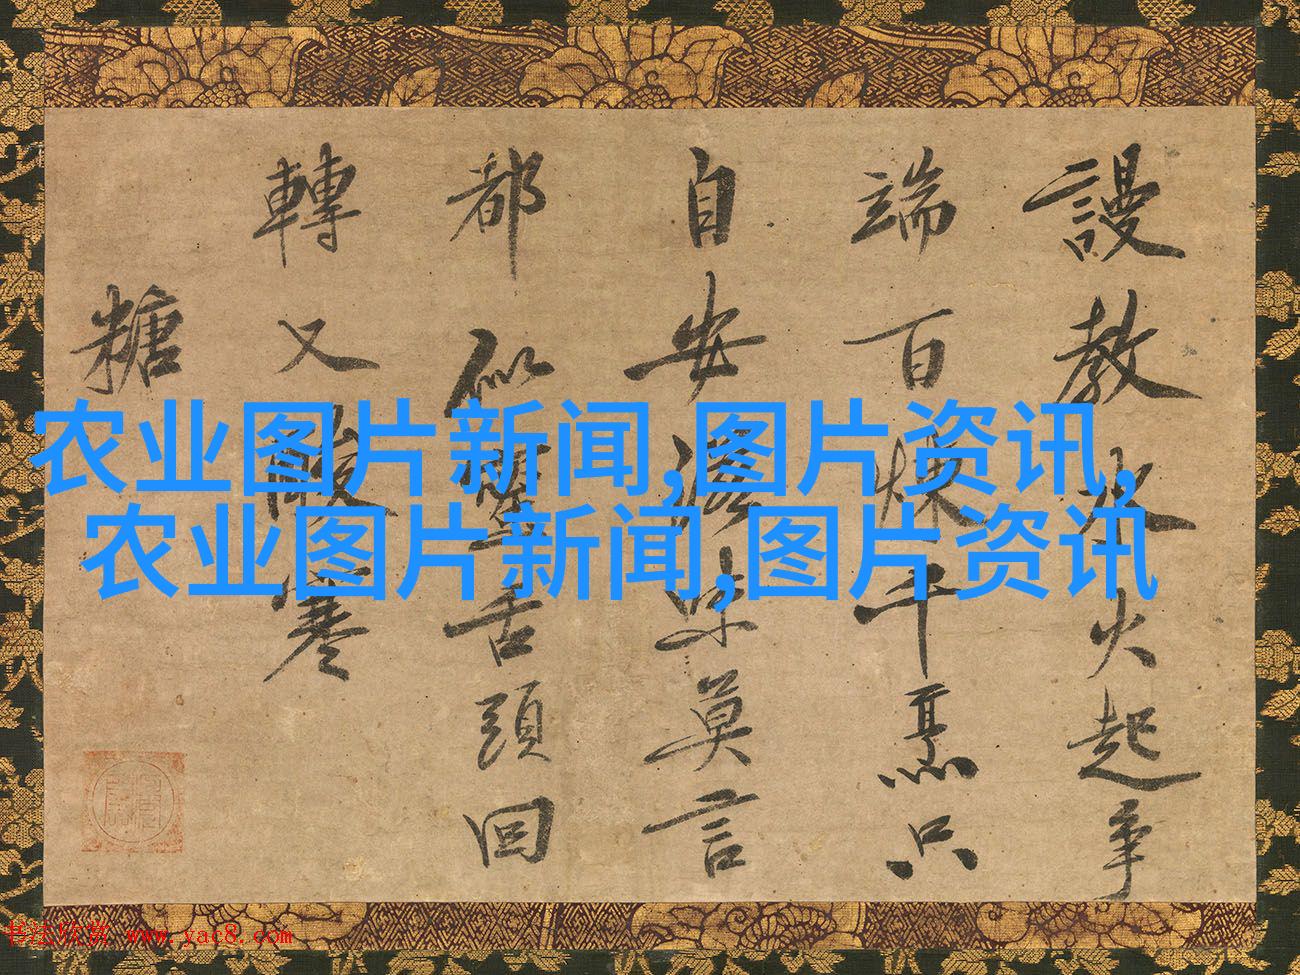 謾教水火起爭
端百煉千烹只
自安味莫言
都似舌頭回
轉又寒
糖
农业图片新闻,图片资讯,
农业图片新闻,图片资讯
书法欣赏 www.yac8.com